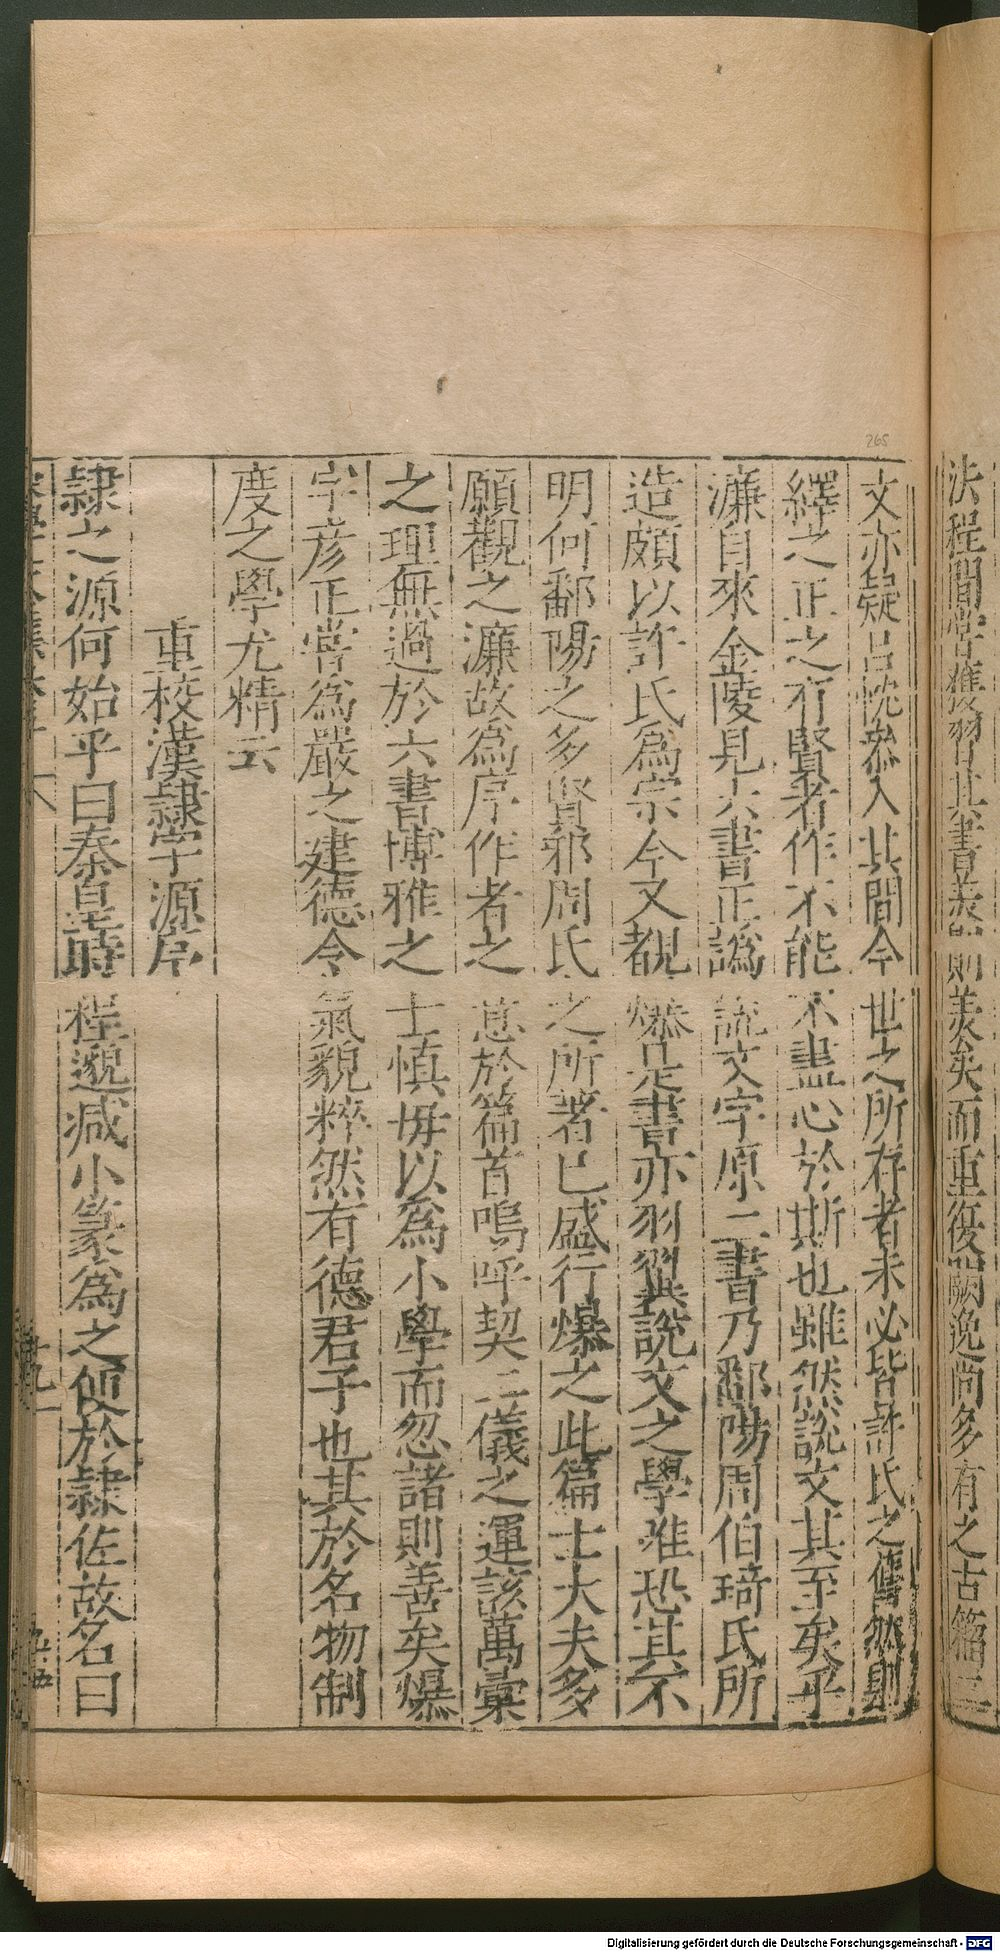 決程間嘗獲習其書美則美矣而重復闕逸尚多有之古籀二
文亦疑呂忱參入其間今世之所存者未必皆許氏之舊然則
繹之正之有賢者作不能不盡心於斯也雖然說文其至矣乎
濂自來金陵見六書正譌說文字原二書乃鄱陽周伯琦氏所
造頗以許氏為宗今又觀爆是書亦羽翼說文之學唯恐其不
明何鄱陽之多賢邪周氏之所著已盛行爆之此篇士大夫多
願觀之濂故為序作者之意於篇首嗚呼契二儀之運該萬彙
之理無過於六書博雅之士慎毋以為小學而忽諸則善矣爆
字彥正嘗為嚴之建德令氣貌粹然有德君子也其於名物制
度之學尤精云
重校漢隸字源序
隸之源何始乎曰秦皇時程邈減小篆為之便於隸佐故名曰
265
Digitalisierung gefördert durch die Deutsche Forschungsgemeinschaft - DFG